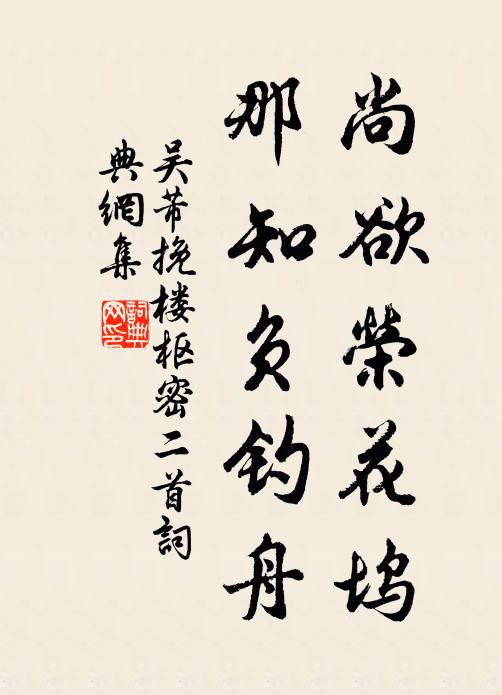 尚欲荣花坞
那知负钓舟
吴芾挽楼枢密二首词
典網集
詞典
网印